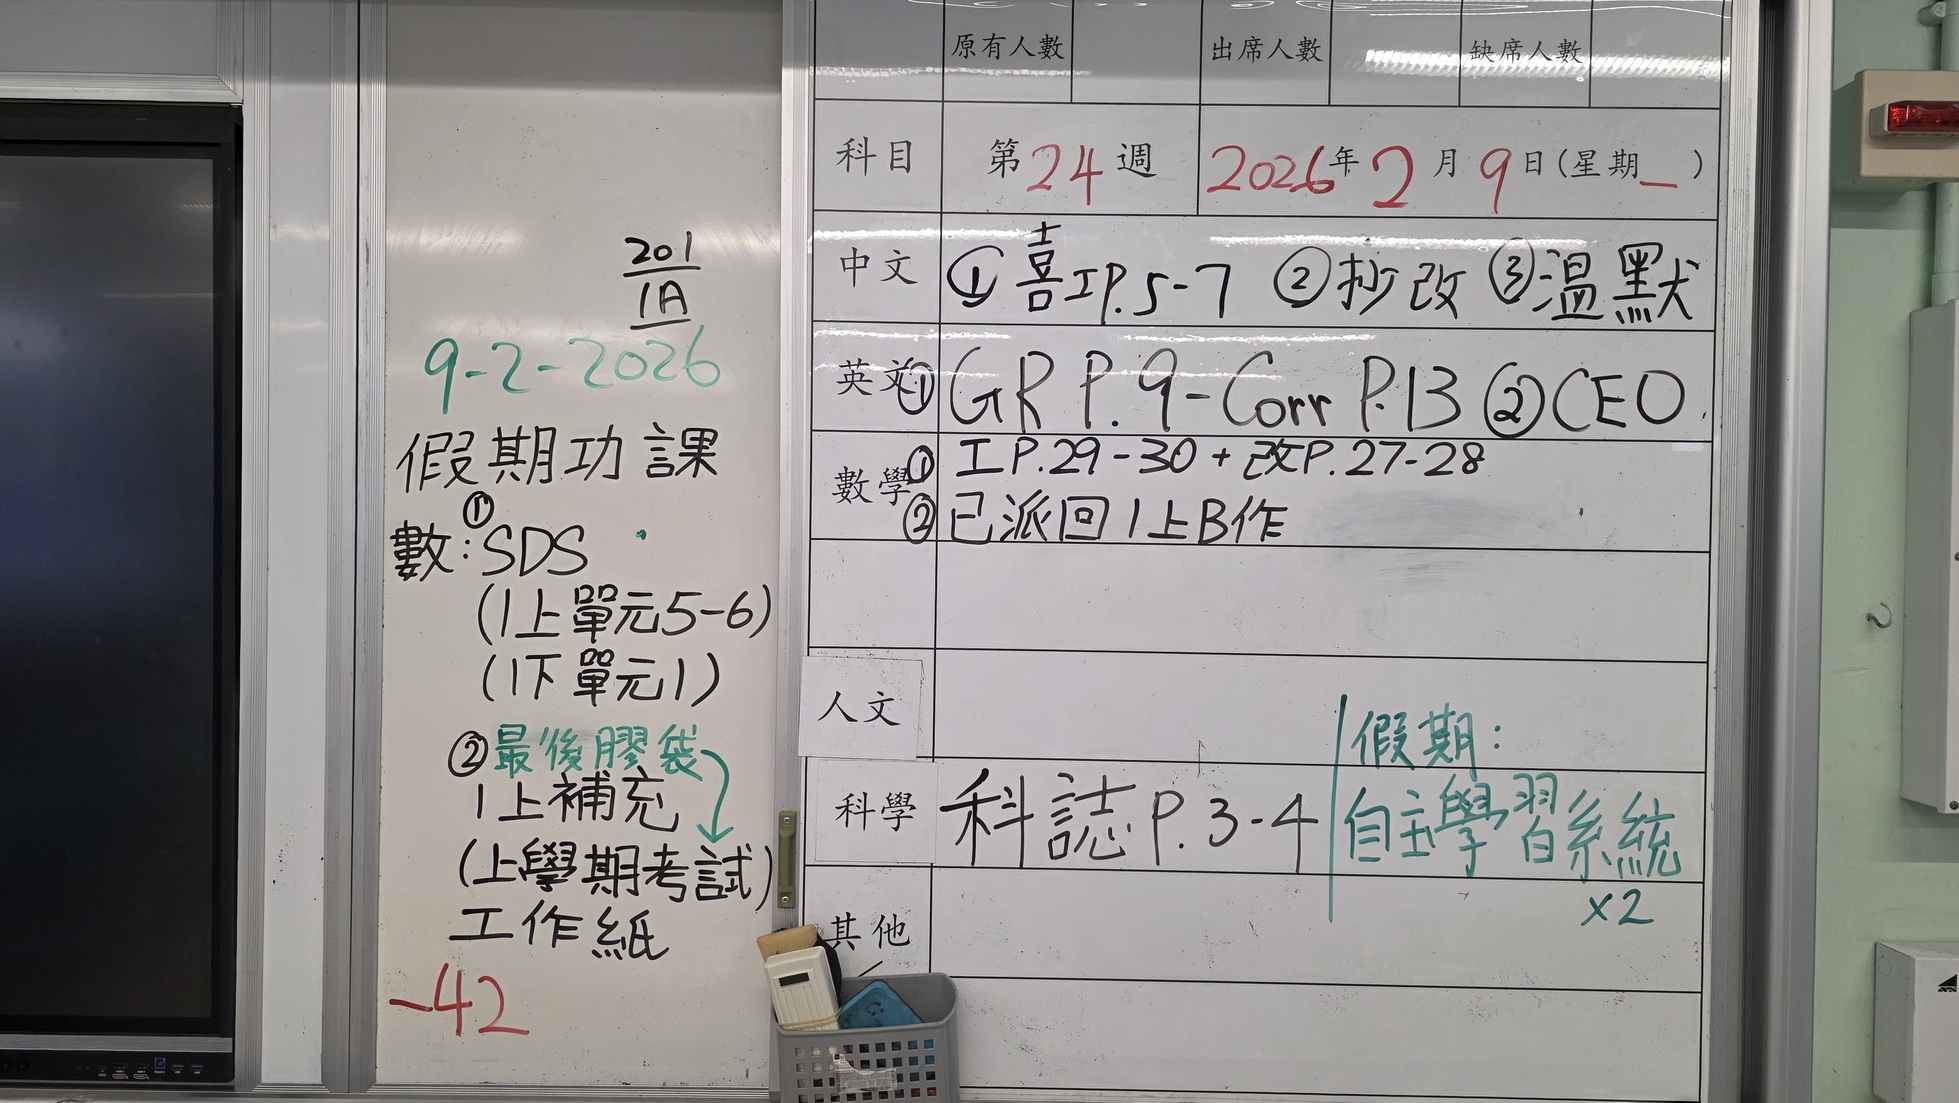 201
1A
9-2-2026
假期功課
數：①SDS
(1上單元5-6)
(1下單元1)
②最後膠袋
1上補充
(上學期考試)
工作紙
-42
原有人數 出席人數 缺席人數
科目 第24週 2026年2月9日(星期一)
中文 ①喜工P.5-7 ②抄改 ③溫默
英文 ①GR P.9-Corr P.13 ②CEO
數學 ①工P.29-30+改P.27-28
②已派回1上B作
人文
假期：
科學 科誌P.3-4 自主學習系統
x2
其他